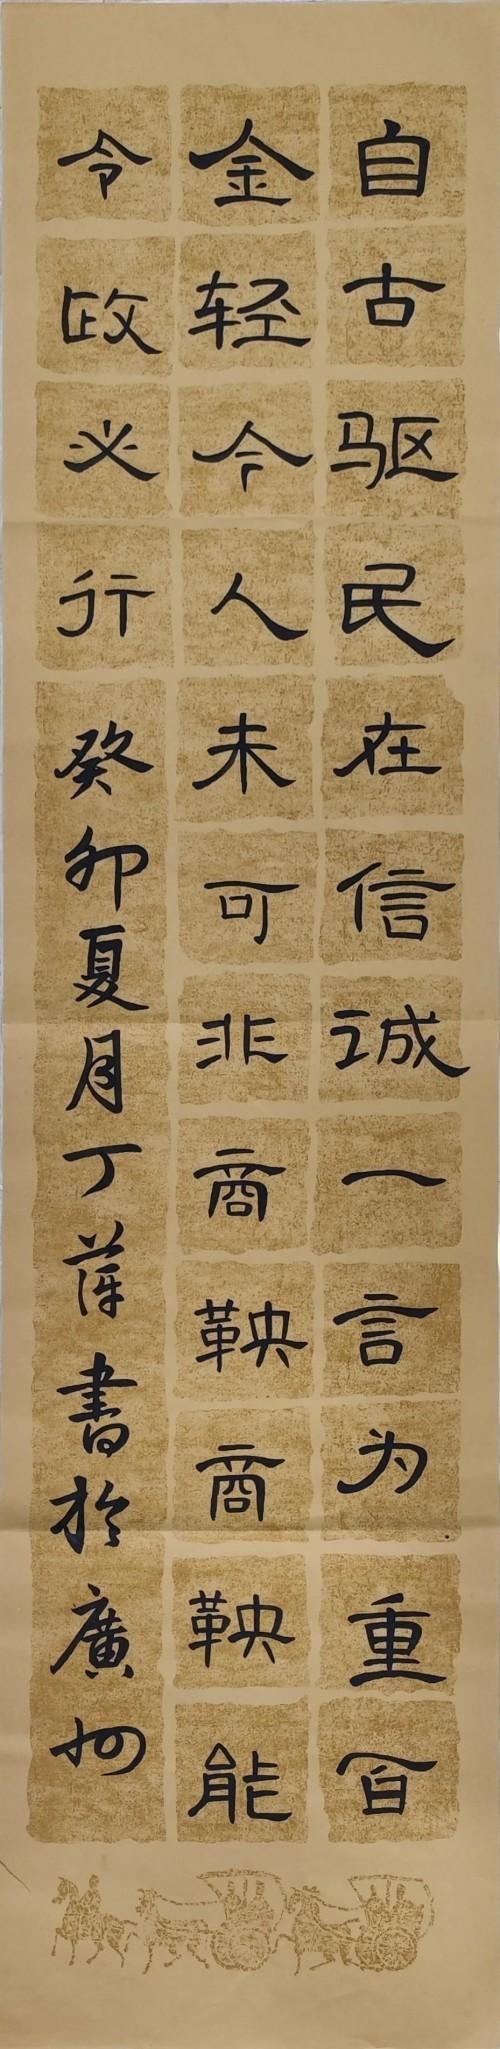 自古驱民在信诚一言为重百
金轻今人未可非商鞅商鞅能
令政必行癸卯夏月丁萍书於廣州